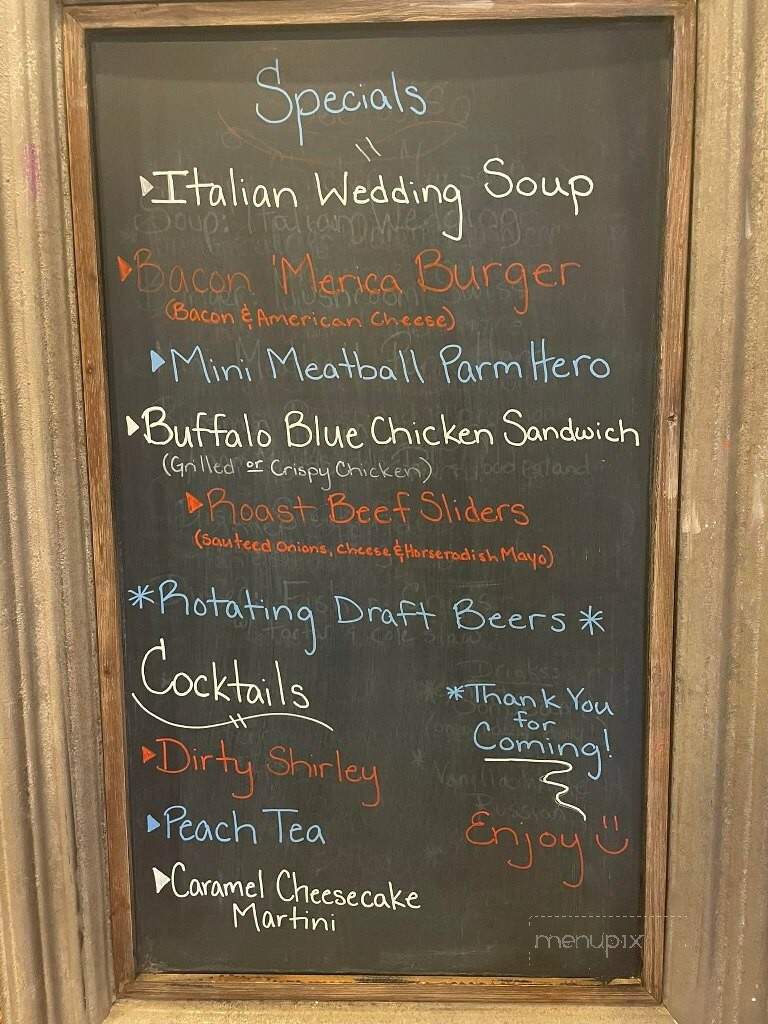 Specials
Italian Wedding Soup
Bacon 'Merica Burger
(Bacon & American Cheese)
Mini Meatball Parm Hero
Buffalo Blue Chicken Sandwich
(Grilled or Crispy Chicken)
Roast Beef Sliders
(Sauteed Onions, Cheese & Horseradish Mayo)
*Rotating Draft Beers*
Cocktails
Dirty Shirley
Peach Tea
Caramel Cheesecake
Martini
*Thank You
for
Coming!
Enjoy
menupix